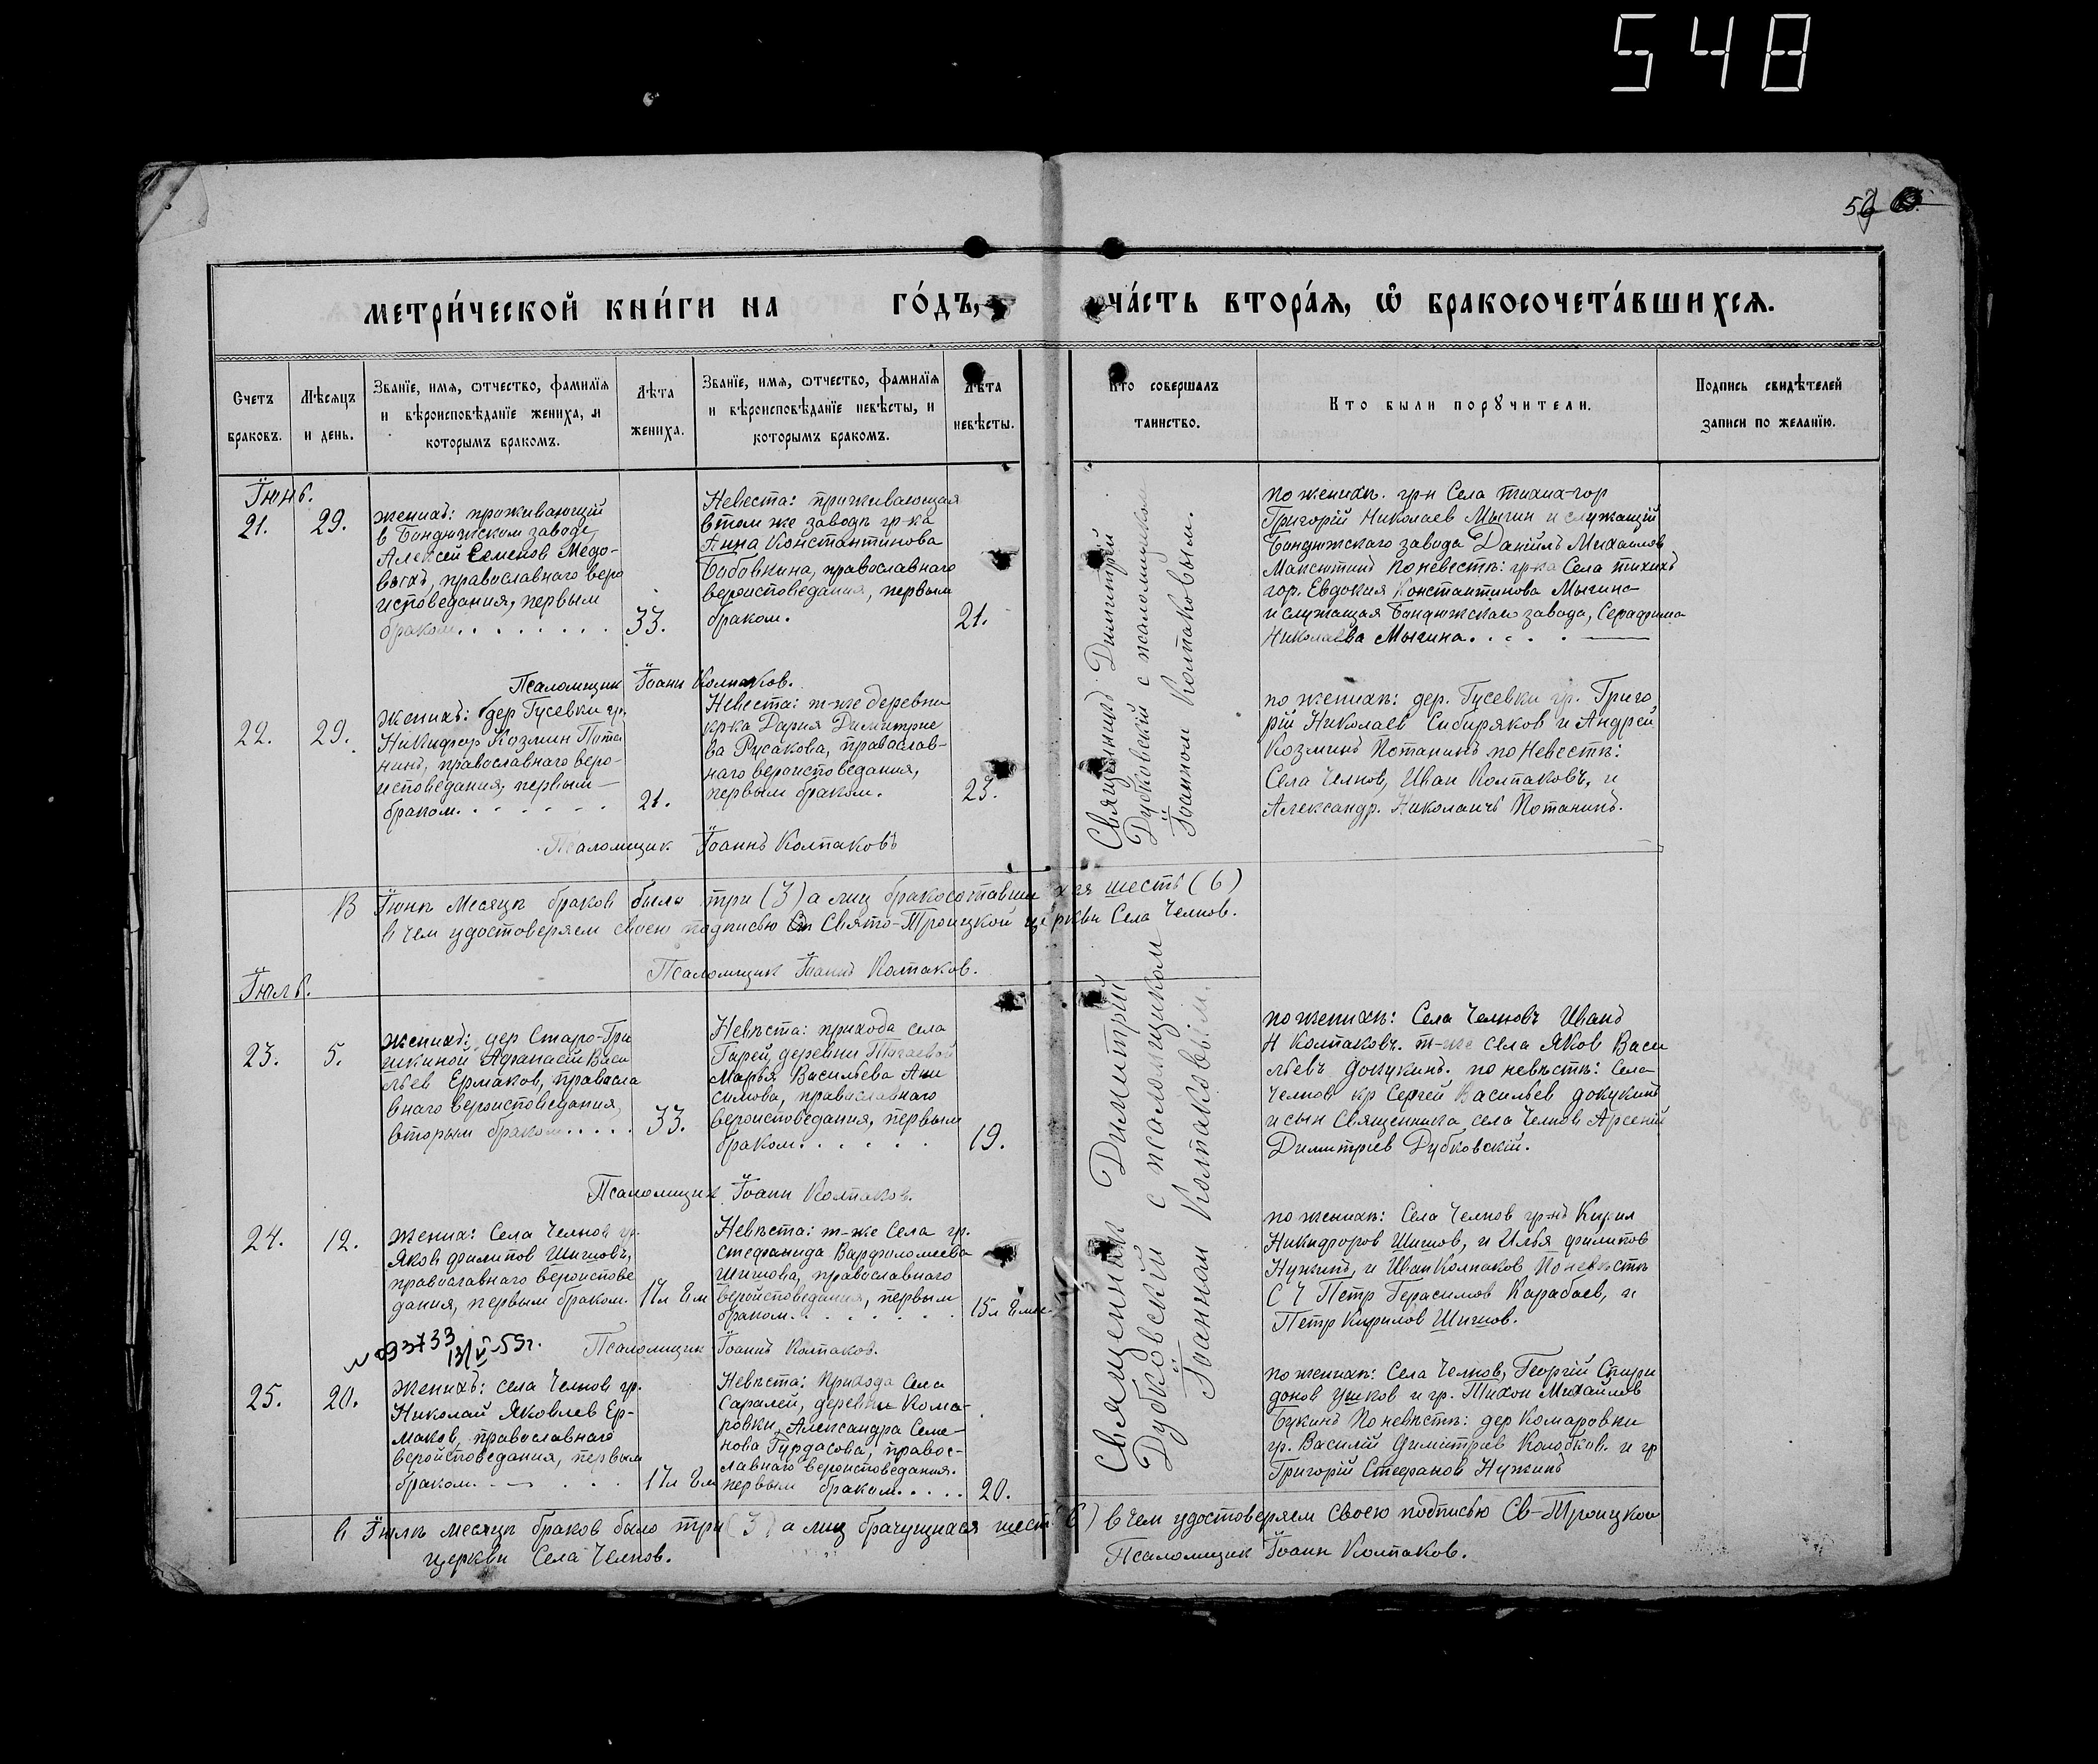 548
56
метри́ческой кни́ги на го́дъ,
ча́сть втора́я, ѡ҆ бракосочета́вшихся.
Счетъ браковъ.
Мѣсяцъ и день.
Званїе, имя, ѡтчество, фамилїя
и вѣроисповѣданїе жениха, и
которымъ бракомъ.
Лѣта
жениха.
Званїе, имя, ѡтчество, фамилїя
и вѣроисповѣданїе невѣсты, и
которымъ бракомъ.
Лѣта
невѣсты.
Кто совершалъ
таинство.
Кто были порꙋчители.
Подпись свидѣтелей
записи по желанїю.
Їюнь.
21. 29.
женихъ: проживающий
в Бондюжском заводе,
Алексей Семенов Медо-
выхъ, православнаго веро
исповедания, первым
браком.
33.
Невеста: проживающая
втом же заводѣ гр-ка
Анна Константинова
Бобовкина, православнаго
вероисповедания, первым
браком.
21.
по женихѣ. гр-н Села тихих-гор
Григорій Николаев Мычин и служащій
Бондюжскаго завода Даніилъ Михаилов
Максютинъ По невестѣ: гр-ка Села тихихъ
гор. Евдокия Константинова Мычина
и служащая Бондюжскаго завода, Серафима
Николаева Мычина.
Псаломщик Їоанн Колпаков.
22. 29.
Женихъ: дер Гусевки гр.
Никифор Козмин Пота
нинъ, православнаго веро-
исповедания, первым
браком.
21.
Невеста: т-же деревни
кр-ка Дария Димитрие
ва Русакова, православ-
наго вероисповедания,
первым браком.
23.
по женихѣ: дер. Гусевки гр. Григо
рій Николаев Сибиряков и Андрей
Козминъ Потанинъ по Невестѣ:
Села Челнов, Иван Колпаковъ, и
Александр. Николаичъ Потанинъ.
Псаломщик Їоаннъ Колпаковъ
Священникъ Димитрій
Дубковскій с псаломщиком
Їоанном Колпаковым.
В Їюнѣ Месяцѣ браков было три (3) а лиц бракосотавши хся шесть (6)
в чем удостоверяем своею подписью Свято-Троицкой церкви Села Челнов.
Псаломщик Їоаннъ Колпаков.
Їюль.
23. 5.
женихъ: дер Старо-Гри
шкиной Афанасій Васи
льев Ермаков, правосла
внаго вероисповедания,
вторым браком.
33.
Невѣста: прихода села
Гарей, деревни
Марья Васильева Ани
симова, православнаго
вероисповедания, первым
браком.
19.
по женихѣ: Села Челновъ Иванъ
Н Колпаковъ. т-же села Яков Васи
льевъ Докукинъ. по невѣстѣ: Села
Челнов кр Сергей Васильев докукинъ
и сын Священника села Челнов Арсеній
Димитриев Дубковскій.
Псаломщик Їоанн Колпаков.
24. 12.
Жених: Села Челнов гр.
Яков филипов Шишов,
православнаго вероиспове
дания, первым браком.
17л 8м
Невѣста: т-же Села гр.
Стефанида Варфоломеева
Шишова, православнаго
вероисповедания, первым
браком.
15л 8мес
по женихѣ: Села Челнов гр-нъ Кирил
Никифоров Шишов, и Илья филипов
Нужинъ, и Иван Колпаков По невѣстѣ
С Ч Петр Герасимов Карабаев, и
Петр Кирилов Шишов.
№ 093733
13/V-59г.
Псаломщик Їоаннъ Колпаков.
25. 20.
Женихъ: села Челнов гр.
Николай Яковлев Ер-
маков, православнаго
вероисповедания, первым
браком.
17л 8м
Невѣста: Прихода Села
Саралей, деревни Кома-
ровки, Александра Семе-
нова Гурдасова, правос-
лавнаго вероисповедания.
первым браком.
20.
по женихѣ: Села Челнов, Георгій Спири
донов Ушков и гр. Тихон Михайлов
Букинъ По невѣстѣ: дер Комаровки
гр. Василій Димитриев Колобков. и гр
Григорій Стефанов Нужинъ
Священник Димитрий
Дубковский с псаломщиком
Їоанном Колпаковым.
в Їюлѣ месяцѣ браков было три (3) а лиц брачущихся шест (6) в чем удостоверяем своею подписью Св-Троицкой
церкви Села Челнов.
Псаломщик Їоанн Колпаков.